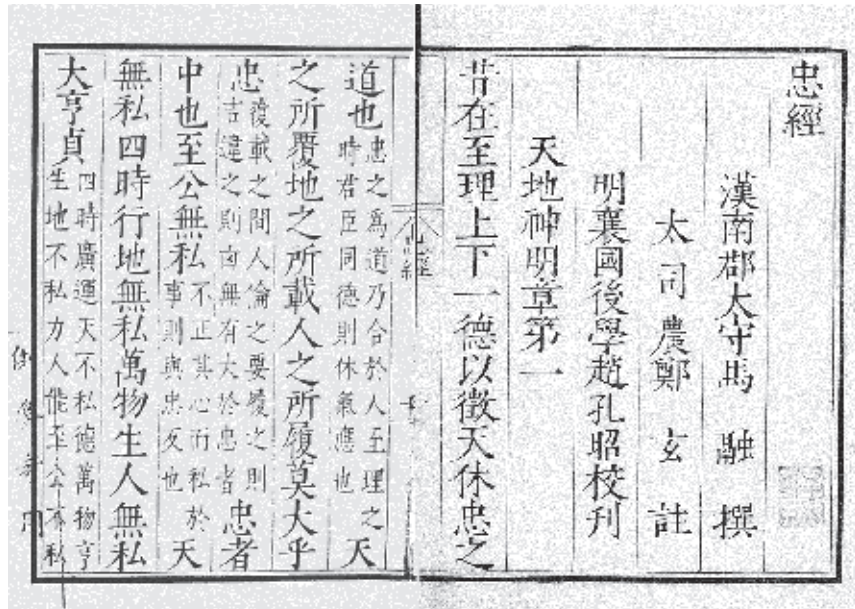 忠經
漢南郡太守馬融撰
太司農鄭玄註
明襄國後學趙孔昭校刊
天地神明章第一
昔在至理上下一德以徵天休忠之
忠經
道也忠之爲道乃合於人至理之時君臣同德則休氣應也天
之所覆地之所載人之所履莫大乎
忠覆載之間人倫之要履之則吉違之則凶無有大於忠者忠者
中也至公無私不正其心而私於事則與忠反也天
無私四時行地無私萬物生人無私
大亨貞四時廣運天不私德萬物亨生地不私力人能至公不私